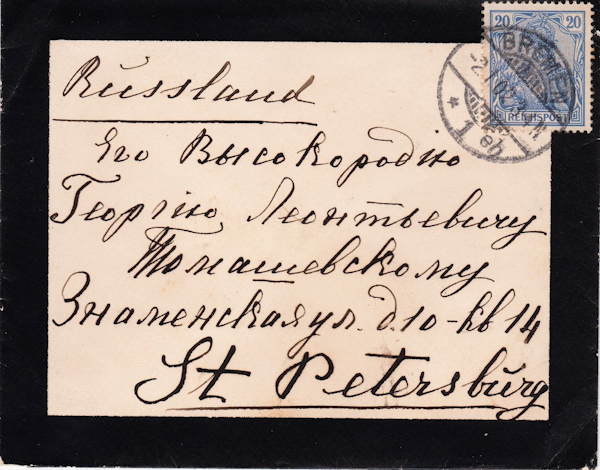 20 20
REICHSPOST
BREMEN
1 eb
Russland
Его Высокородію
Георгію Леонтьевичу
Томашевскому
Знаменская ул. д. 10 - кв 14
St Petersburg